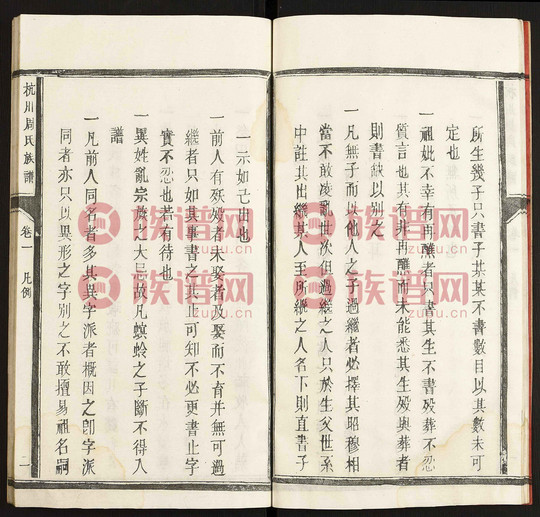 所生幾子只書子某某不書數目以其數未可
定也
一祖妣不幸有再醮者只書其生不書歿葬不忍
質言也其有非再醮而未能悉其生歿與葬者
則書缺以别之
一凡無子而以他人之子過繼者必擇其昭穆相
當不敢凌亂世次但過繼之人只於生父世系
中註其出繼某人至所繼之人名下則直書子
一示如亡出也
一前人有殁者未娶者及娶而不育並無可過
繼者只如其事書之其止可知不必更書止字
實不忍也若有待也
一異姓亂宗族之大忌故凡螟蛉之子斷不得入
譜
一凡前人同名者多其異字派者概因之卽字派
同者亦只以異形之字别之不敢擅易祖名嗣
杭川周氏族譜
卷一
凡例
一
族谱网
zupu.cn
族谱网
zupu.cn
族谱网
zupu.cn
族谱网
zupu.cn